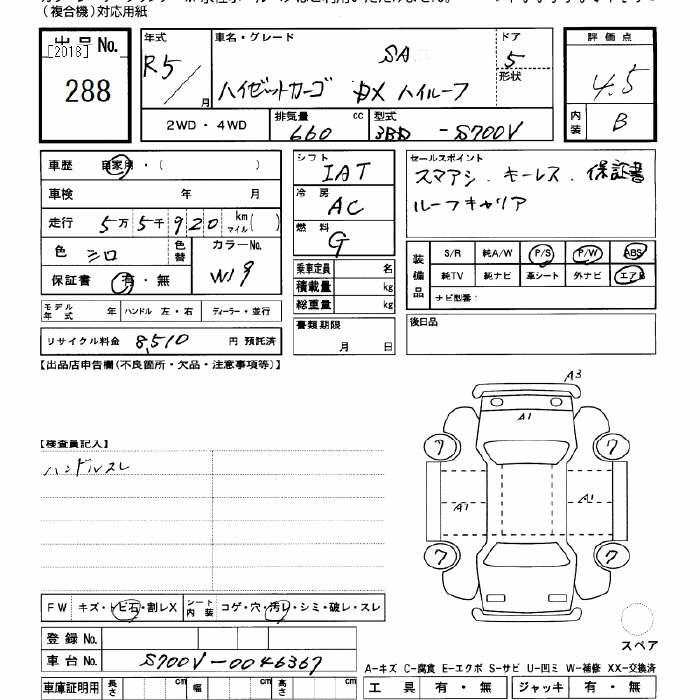 （複合機）対応用紙
出品No.
[2018]
288
年式 R5/ 月
車名・グレード SA
ハイゼットカーゴ DX ハイルーフ
ドア 5
形状
2WD・4WD
排気量 660 cc
型式 3BD-S700V
評価点 4.5
内装 B
車歴 自家用・（ ）
車検 年 月
走行 5万5千920 km マイル( )
色 シロ 色替 カラーNo. W19
保証書 有・無
モデル年式 年 ハンドル 左・右 ディーラー・並行
リサイクル料金 8,510 円 預託済
シフト IAT
冷房 AC
燃料 G
乗車定員 名
積載量 kg
総重量 kg
書類期限 月 日
セールスポイント
スマアシ．キーレス．保証書
ルーフキャリア
装備品 S/R 純A/W P/S P/W ABS
純TV 純ナビ 革シート 外ナビ エアB
ナビ型番：
後日品
【出品店申告欄(不良箇所・欠品・注意事項等)】
【検査員記入】
ハンドルスレ
A3
A1
7 7
A1 A1
7 7
スペア
FW キズ・トビ石・割レX シート内装 コゲ・穴・汚レ・シミ・破レ・スレ
登録No.
車台No. S700V-0046367
車庫証明用 長さ cm 幅 cm 高さ cm
A-キズ C-腐食 E-エクボ S-サビ U-凹ミ W-補修 XX-交換済
工具 有・無 ジャッキ 有・無